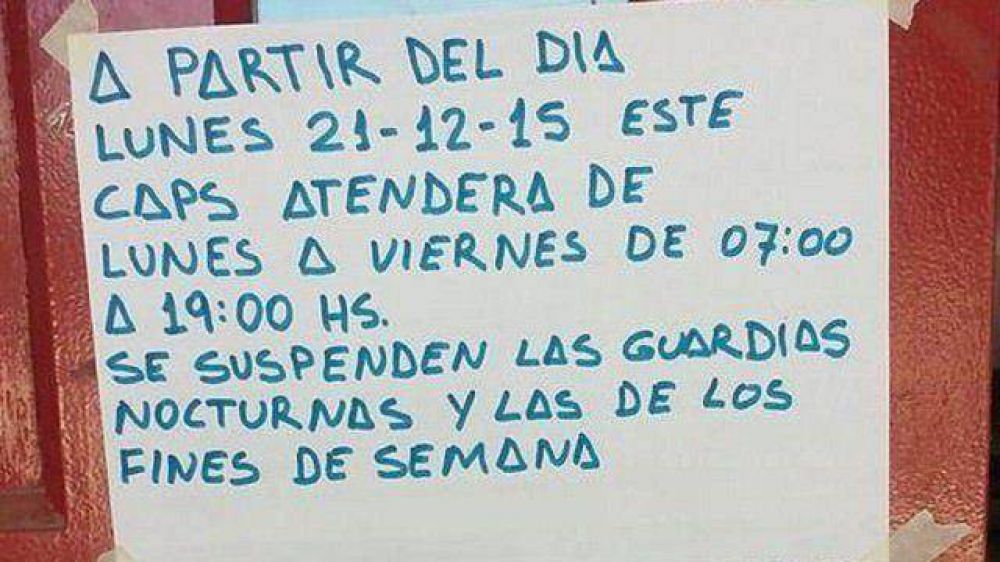 A PARTIR DEL DIA
LUNES 21-12-15 ESTE
CAPS ATENDERA DE
LUNES A VIERNES DE 07:00
A 19:00 HS.
SE SUSPENDEN LAS GUARDIAS
NOCTURNAS Y LAS DE LOS
FINES DE SEMANA